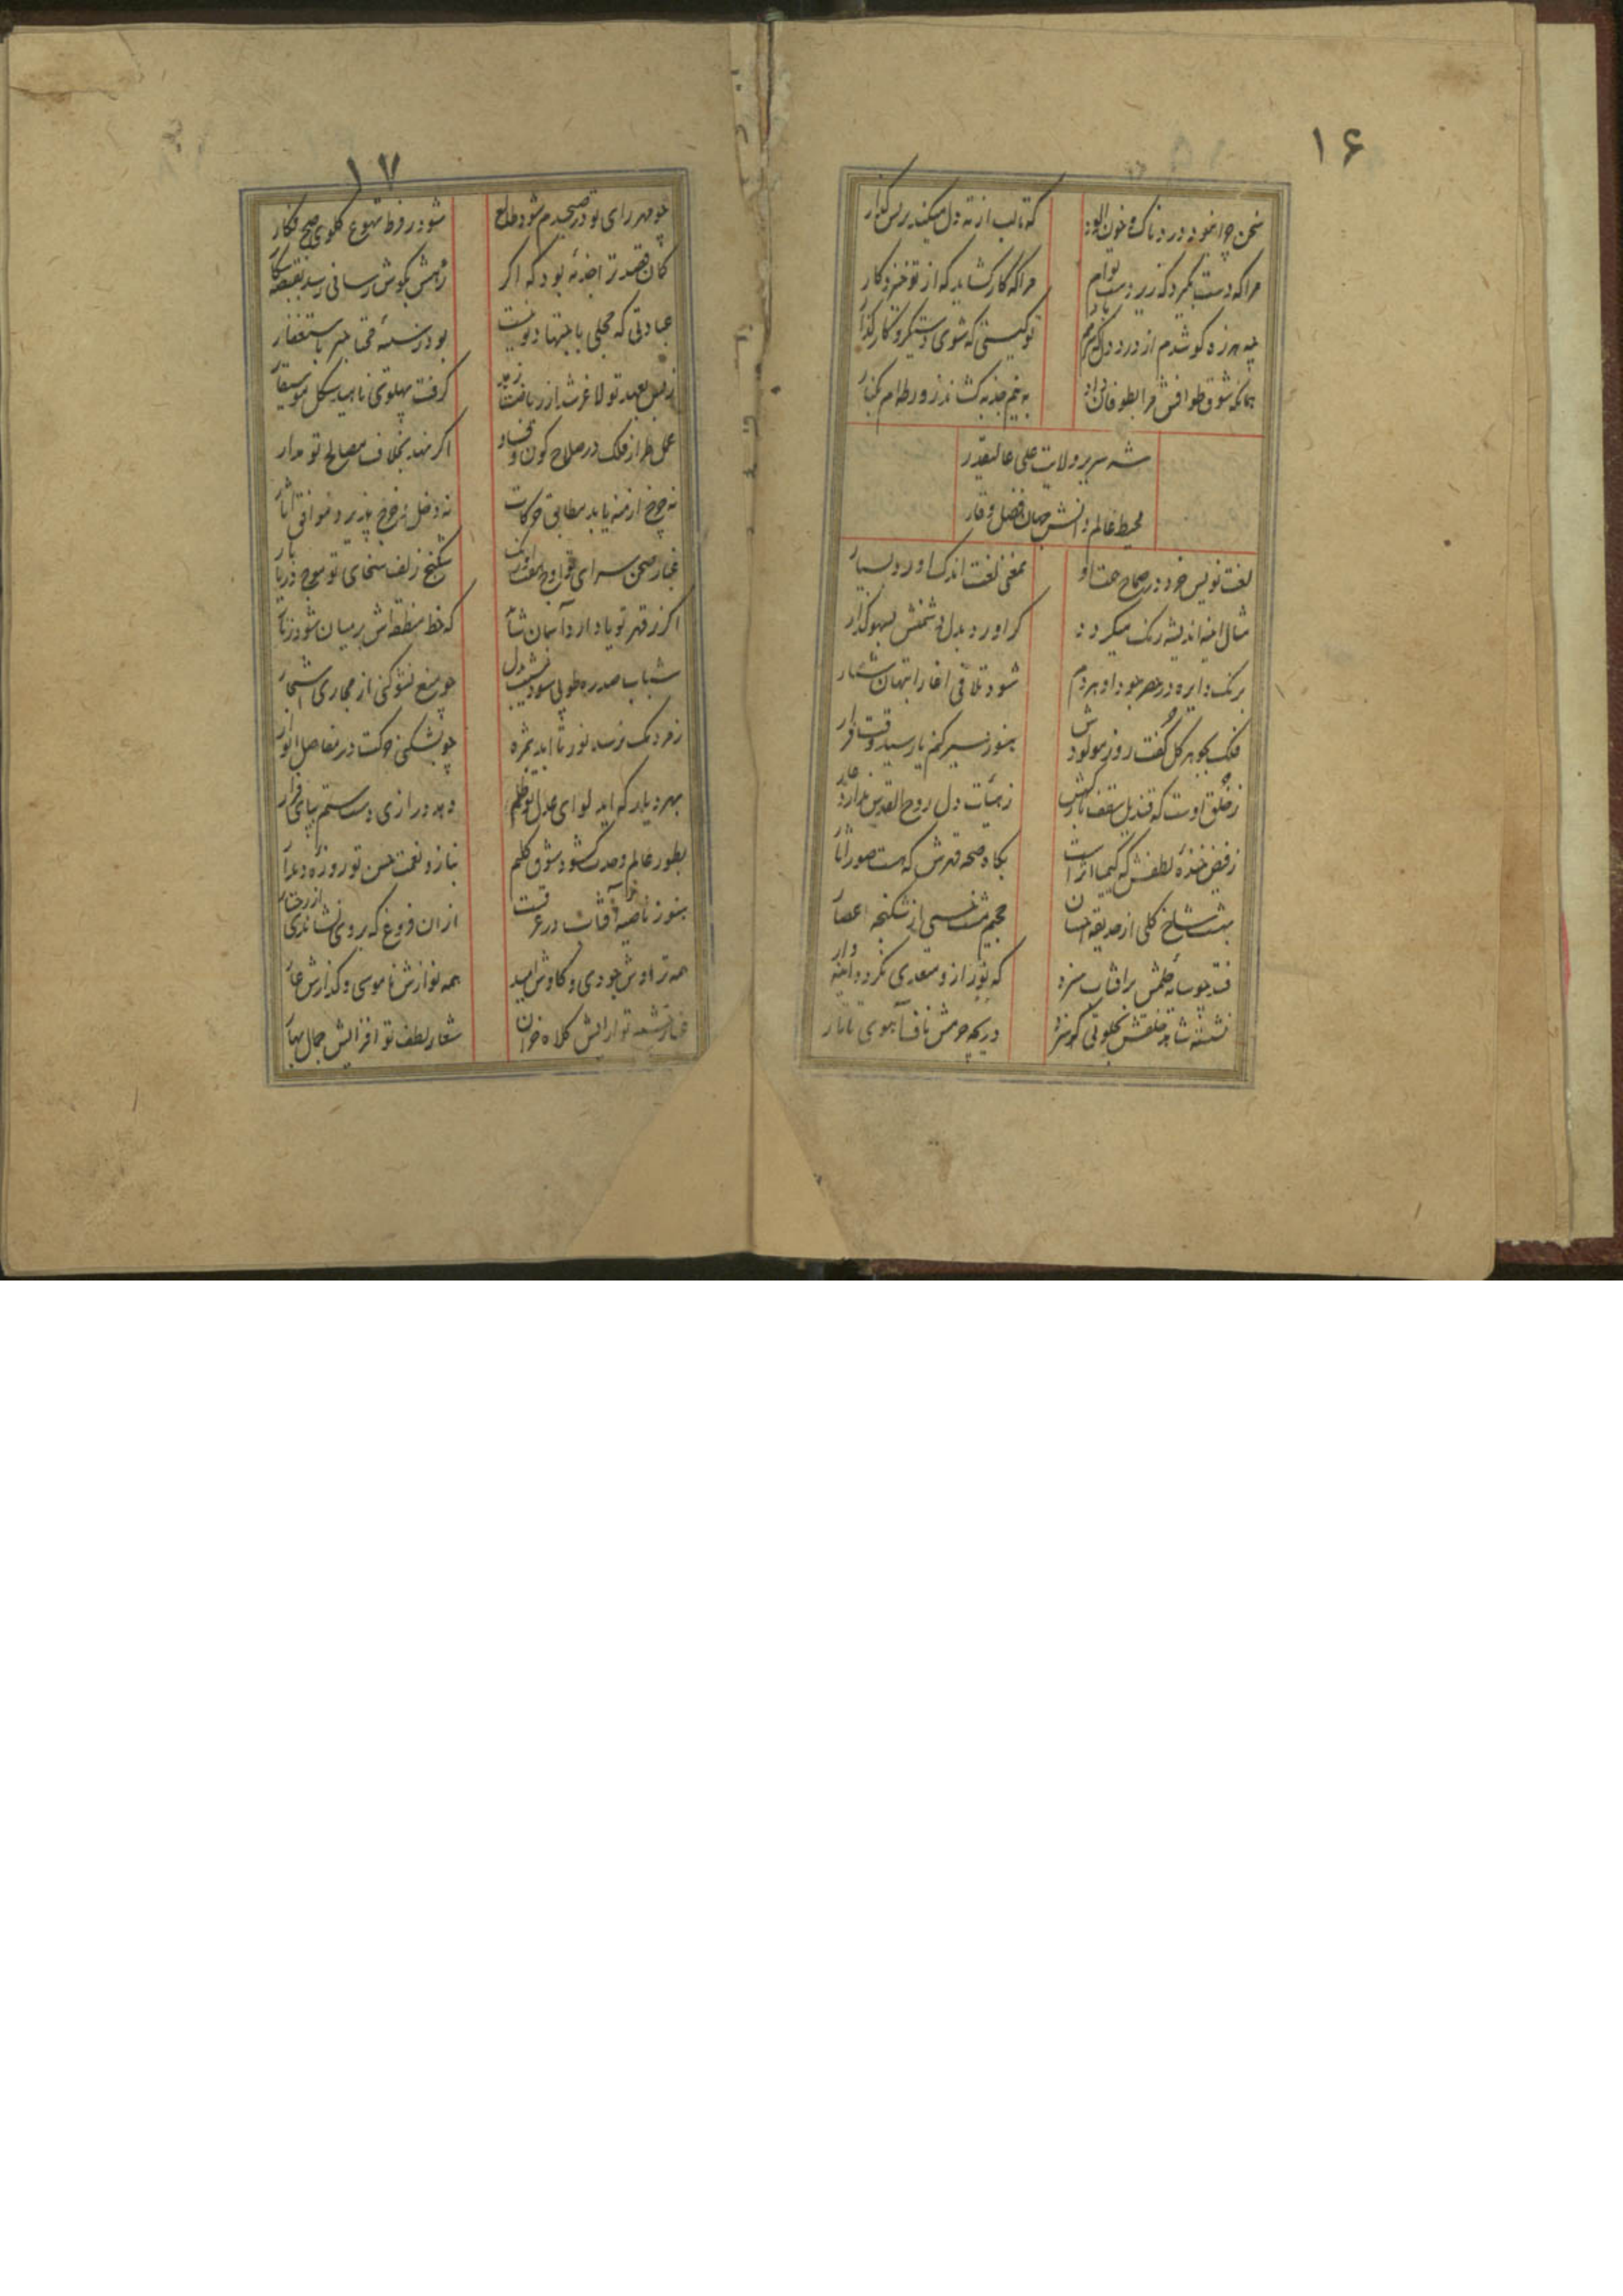 ۱۶
سخن چرا نبود دردناک و خون آلود
که تا لب از ته دل میکند بریش گذار
مرا که دست بگیرد که زیر دست توام
مرا که کار گشاید که از تو خیزد کار
چه هرزه کو شدم از درد دل
تو کیستی که شوی دستگیر و کارگذار
همانکه شوق طوافش مرا بطوفان داد
به نیم جذبه کشاند ز ورطه ام بکنار
شه سریر ولایت علی عالیقدر
محیط عالم دانش جهان فضل و وقار
لغت نویس خرد در صحاح همت او
بمعنی لغت اندک آورد بسیار
مثال آینه اندیشه رنگ میگیرد
گر آورد بدل دشمنش بسهو گذار
برنگ دایره در حصر جود او هر دم
شود تلاقی آغاز انتهای شمار
فلک بجوهر کل گفت روز مولودش
هنوز سیر کنم یا رسید وقت قرار
ز خلق اوست که قندیل سقف بارگهش
ز هیأت دل روح القدس ندارد عار
ز فیض خنده لطفش که کیمیا اثر است
بگاه صدمه قهرش که هست صور آثار
بهشت شاخ گلی از حدیقه احسان
جحیم مشت خسی از شکنجه اعصار
فتد چو سایه حلمش بر آفتاب سزد
که نور ازو متعدی نگردد آینه وار
نشسته شاهد خلقش بخلوتی که سزد
دریچه حرمش ناف آهوی تاتار
۱۷
چو مهر رای تو در صبحدم شود طالع
شود ز فرط تهوع گلوی صبح فکار
کمان قصد ترا جذبه بود که اگر
زهش بگوش رسانی رسد بقبضه شکار
عبادتی که محلی باجتهاد تو نیست
بود ز سینه متی خبر باستغفار
ز بس بعهد تو لاغر شد از ریاضت زهد
گرفت پهلوی ناهید شکل موسیقار
عمل طراز فلک در صلاح کون و فساد
اگر نهد بخلاف مصالح تو مدار
نه چرخ ازمنه یابد مطابق حرکات
نه دخل نه خرج پذیرد موافق آثار
غبار صحن سرای تو اوج هفت اورنگ
شکنج زلف سخای تو موج دریا بار
اگر ز قهر تو یاد آرد آسمان شاید
که خط منطقه اش بر میان شود زنار
شباب سدره و طوبی شود بشیب بدل
چو منع نشو کنی از مجاری اشجار
ز فرد یک نرسد نوبر تا ابد بثمره
چو بشکنی حرکت در مفاصل ادوار
بهر دیار که آید لوای عدل تو ظلم
دهد درازی دست ستم بپای فرار
بطور عالم وحدت شود بشوق کلیم
بناز و نعمت حسن تو روزه دیدار
هنوز ناصیه آفتاب در عرق است
از آن فروغ که بر وی نشاندی از رخسار
همه تراوش جودی و کاوش امید
همه نوازش ناموسی و گدازش عار
تو آرایش کلاه خزان
شعار لطف تو افزایش جمال بهار